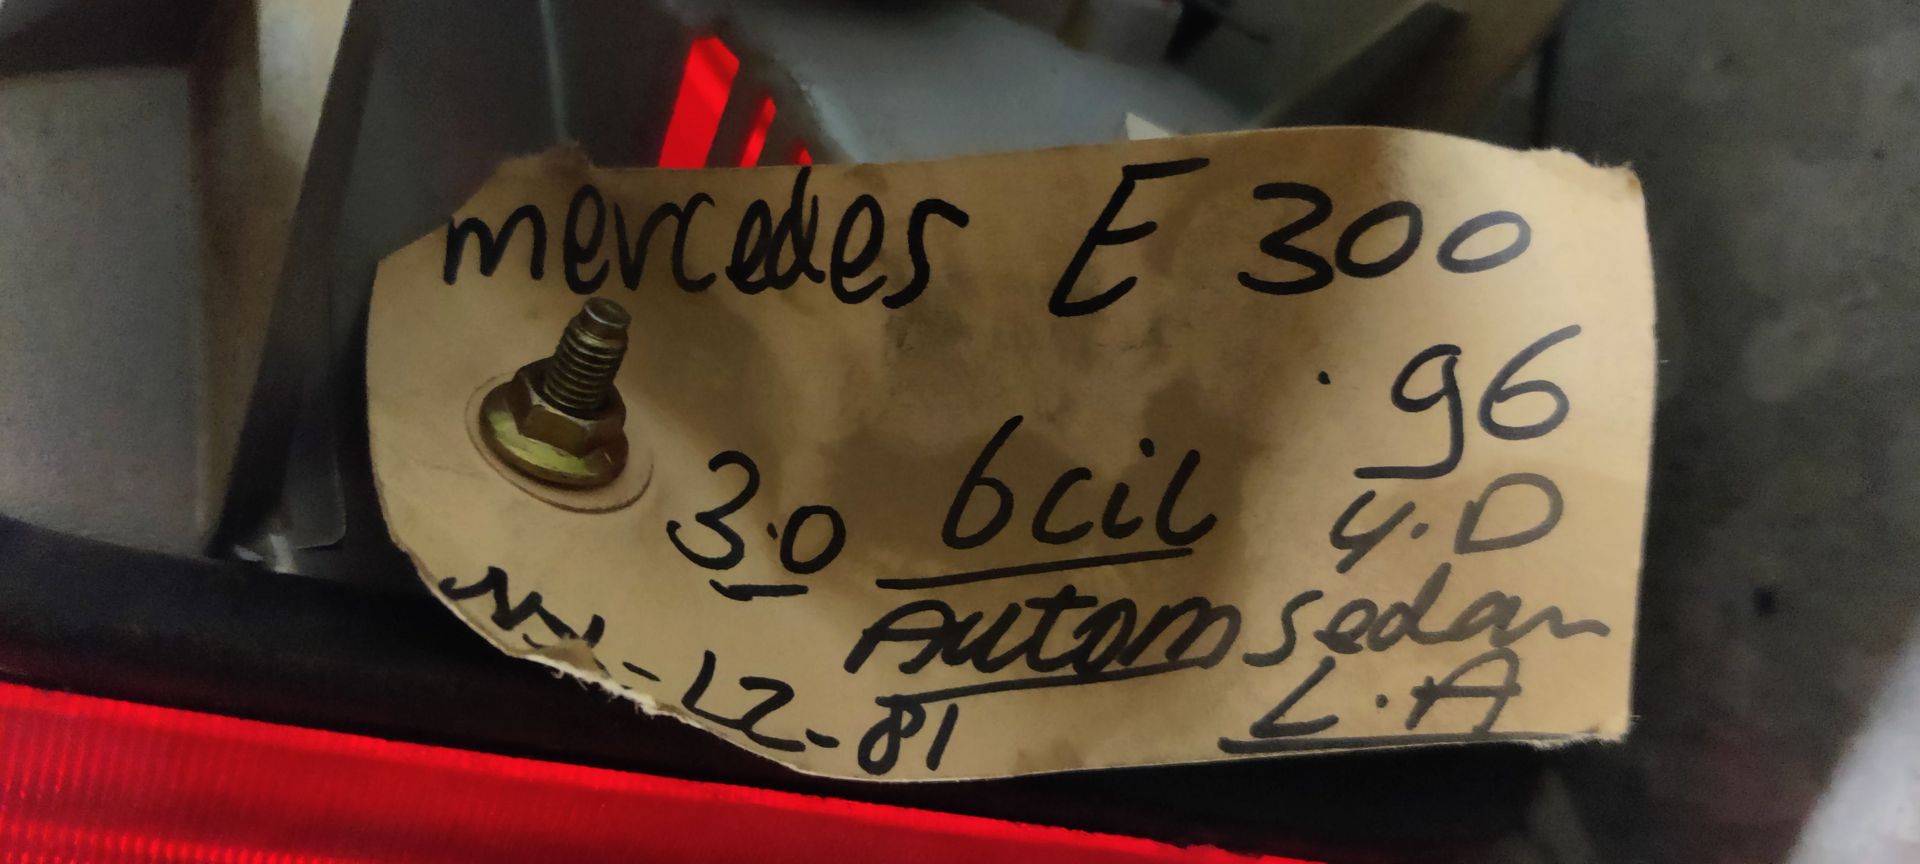 mercedes E 300
96
3.0 6cil 4.D
Autom Sedan
-LZ-81 L.A